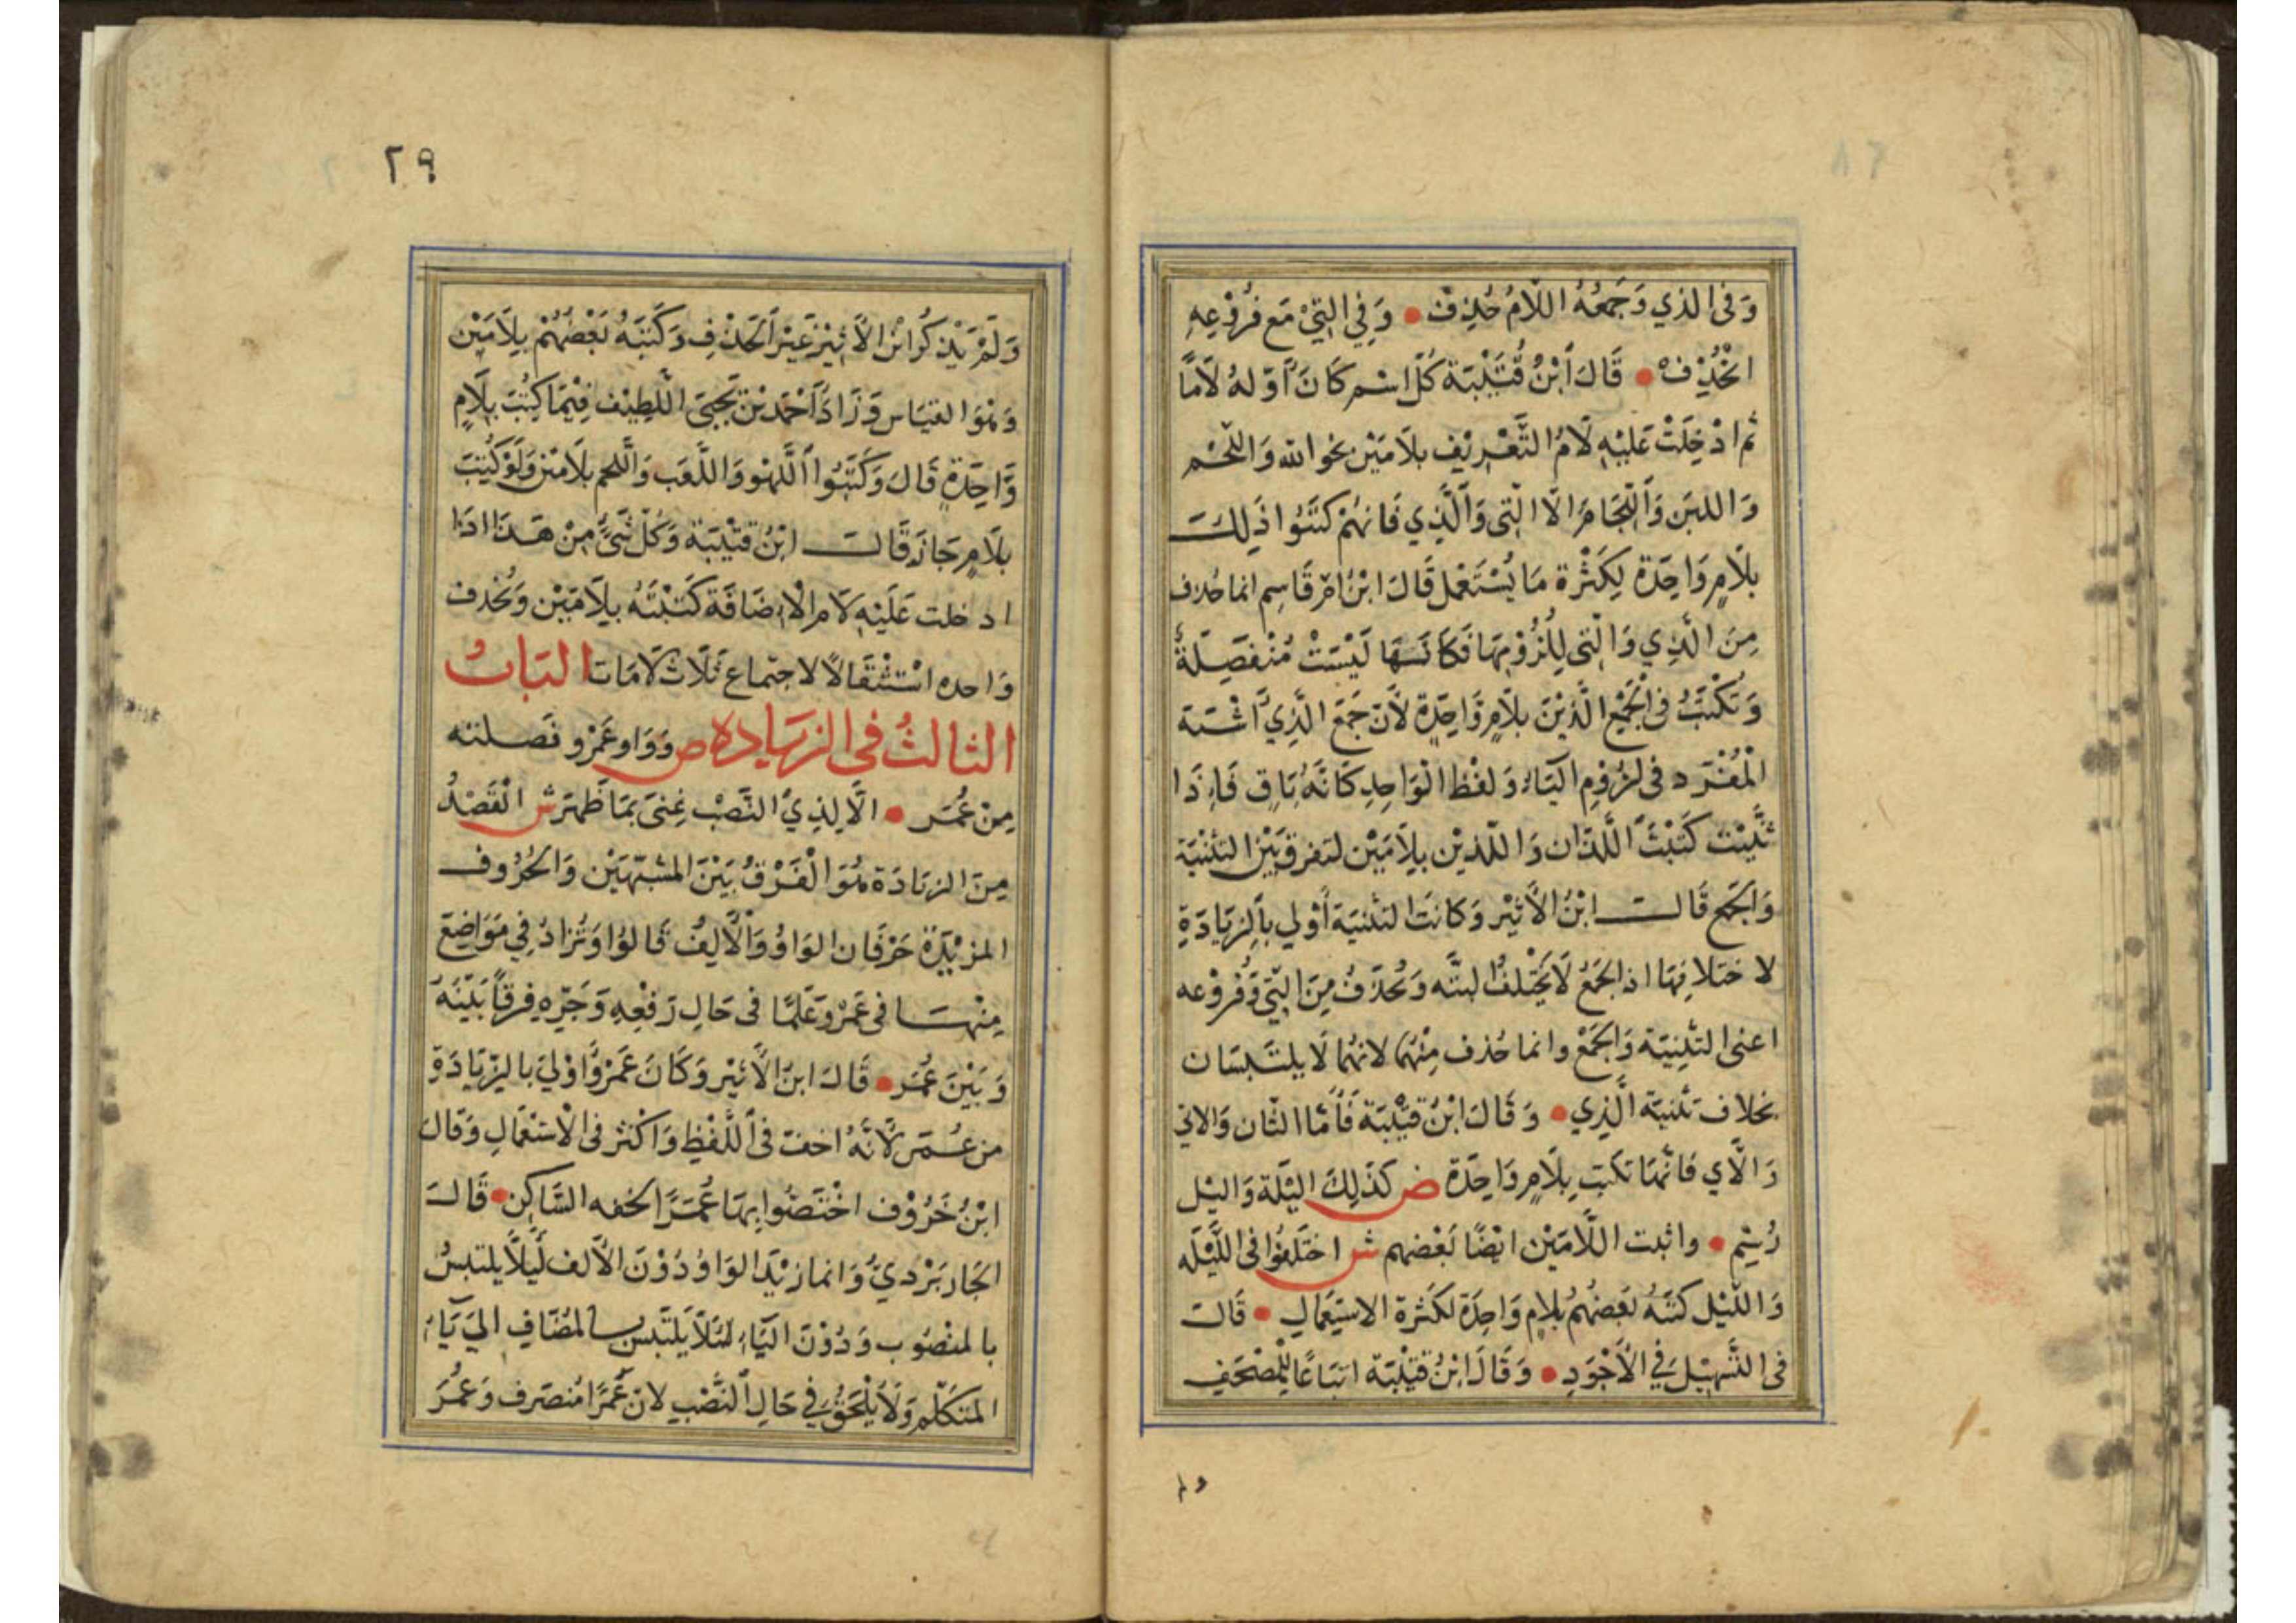 وَفى الذي وَجَمعُهُ اللامُ حُذِفْ • وَفِي الَّتِيْ مَع فُرُوْعِهِ
اخْذِفْ • قَالَ ابْنُ قُتَيْبَة كُلّ اسْم كَانَ اَوّلهُ لَامًا
ثم ادْخِلَتْ عَلَيْهِ لَامُ التَّعْرِيْف بلَامَيْن نحو الله وَاللّحْم
وَاللبَن وَاللِّجَام اِلَّا الَّتِى وَالَّذِي فَانهُمْ كَتَبُوا ذَلِكَ
بلَامٍ وَاحِدَة لِكَثْرة مَا يُسْتَعْمل قَالَ ابْنُ امّ قَاسِم انما حُذف
مِنَ الَّذِي وَالَّتِى لِلُزُوْمِهَا فَكَاَنَّهَا لَيْسَتْ مُنْفَصِلَةً
وَتُكْتَبُ فى الْجَمْع الَّذيْنَ بلَامٍ وَاحِدَةٍ لأَنّ جَمَعَ الَّذِي اَشْبَهَ
الْمُفْرَد فى لزُوْمِ اليَاء وَلفْظ الوَاحِدِ كَانَّهُ بَاقٍ فَإِذَا
ثنَّيْت كَتَبْتَ اللَّذَان وَاللّذَيْن بِلَامَيْن لتفرق بَيْنَ التثنيَة
وَالجَمْع قَالَ ابْنُ الاَثيْر وَكانَت التثنيَة أَوْلي بالزيَادَةِ
لاختلافِهَا اذ الجَمْعُ لَا يَخْتَلفُ البتَّه وَتُحذَفُ مِنَ الَّتِي وَفُرُوْعه
اعني التثنِيَة وَالجَمْعْ وانما حُذف مِنْهُمَا لانهُمَا لَا يلتَبسَان
بخلاف تثنيَة الَّذِي • وَقَالَ ابْنُ قتَيْبَة فَأمّا التَان وَالاتي
وَالَّاي فَانَّهَا تكتب بِلَامٍ وَاحِدَة ص كَذَلِكَ اليْلَة وَاليْل
رُسِم • واثبت اللَّامَيْن ايْضًا بَعْضهم ش اختَلَفُوا فى اللَّيْلَه
وَاللّيْل كَتَبَهُ بَعضهُمْ بلام وَاحِدَة لكَثرة الاسْتِعْمالِ • قَالَ
فى التَّسْهِيْل فِي الْأَجْوَدِ • وَقَالَ ابْنُ قتيْبَة اتبَاعًا لِلْمُصْحَفِ
٢٩
وَلَمْ يَذكُر ابْنُ الأَثيْر غَيْرَ الحَذْفِ وَكَتَبَهُ بَعْضُهُمْ بِلَامَيْن
وَهُوَ القيَاس وَزَادَ اَحْمَد بْنُ يَحْيَى اللَّطِيْف فِيْمَا كُتِبَ بِلَامٍ
وَّاحِدَةٍ قَالَ وَكَتَبُوا اللَّهْو وَاللَّعَب وَاللّحم بلَامَيْن وَلَوْ كُتِبَ
بلَامٍ جَازَ قَالَ ابْنُ قتَيْبَة وَكُلّ شَيْءٍ مِنْ هَذَا اذَا
ادخلت عَلَيْهِ لَام الْاِضَافَة كَتَبْتَهُ بِلَامَيْن وَتُحْذف
وَاحده اسْتثْقَالًا لاجتماع ثَلَاث لَامَات البَابُ
الثالثُ فى الزيَاده ص وَوَاو عَمْرو فَصلته
مِنْ عُمَر • الَّا لِذِي النَّصْبِ غِنىً بمَا ظَهَر ش القَصْدُ
مِنَ الزيَادَة هُوَ الْفَرْقُ بَيْنَ المشبّهَيْن وَالحُرُوف
المزيْدَة حَرْفَان الوَاوُ وَالْأَلِفُ قَالوُا وَتُزَادُ فِي مَوَاضِعَ
مِنْهَا فى عَمْرو عَلمًا فى حَالِ رَفْعِهِ وَجَرّهِ فرقًا بَيْنَهُ
وَبَيْنَ عُمَر • قَالَ ابنُ الأَثيْر وَكَانَ عَمْرُو اَوْلَى بالزيَادَةِ
من عُمَر لأَنَّهُ اخفّ فى اللَّفْظِ وَاكْثر فى الاسْتعْمَالِ وَقَالَ
ابْنُ خَرُوْف اخْتَصُّوا بِهَا عَمْرًا لخفه السَّاكِن • قَالَ
الجَاربَرْدِيُّ وَانما زيْدَ الوَاوُ دُوْنَ الأَلف لَيْلاَّ يلتبسُ
بالمنْصُوب وَدُوْنَ اليَاءِ لئَلاَّ يَلتَبس بالمُضَافِ اِلي يَاءِ
المتكَلّم وَلَا يُلْحَقُ فِي حَالِ النَّصْبِ لانّ عَمْرًا مُنصَرف وَعُمَرُ